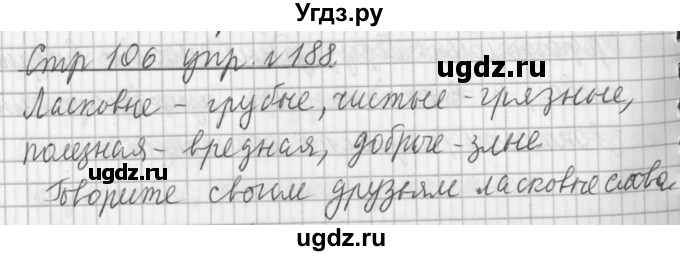 Угдз.ру
Стр 106 упр. №188.
ugdz.ru ugdz.ru
Ласковые - грубые, чистые - грязные,
ugdz.ru
полезная - вредная, добрые - злые
ugdz.ru
Говорите своим друзьям ласковые слова.
ugdz.ru ugdz.ru